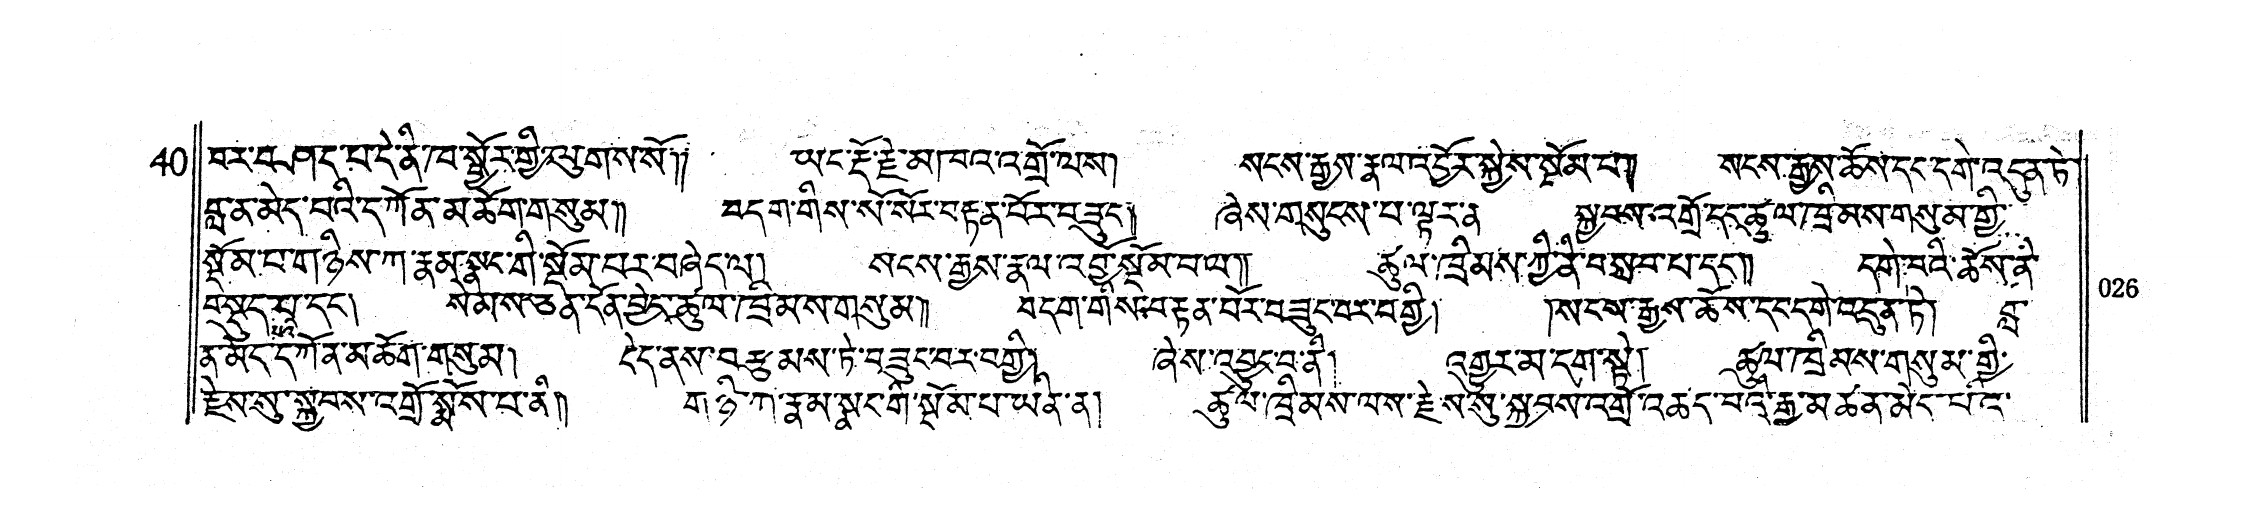 40 བར་བཤད་པ་དེ་ནི་ཁ་སྦྱོར་གྱི་ལུགས་སོ།། ཡང་རྡོ་རྗེ་མཁའ་འགྲོ་ལས། སངས་རྒྱས་རྣལ་འབྱོར་སྐྱེས་སྡོམ་པ།། སངས་རྒྱས་ཆོས་དང་དགེ་འདུན་ཏེ་
བླ་ན་མེད་པའི་དཀོན་མཆོག་གསུམ།། བདག་གིས་སོ་སོར་བརྟན་པོར་བཟུང༌། ཞེས་གསུངས་པ་ལྟར་ན སྐྱབས་འགྲོ་དང་ཚུལ་ཁྲིམས་གསུམ་གྱི་
སྡོམ་པ་གཉིས་ཀ་རྣམ་སྣང་གི་སྡོམ་པར་བཞེད་ལ། སངས་རྒྱས་རྣལ་འབྱོ་སྡོམ་པ་ཡ།། ཚུལ་ཁྲིམས་ཀྱི་ནི་བསླབ་པ་དང༌།། དགེ་བའི་ཆོས་ནི་
བསྡུད་པ་དང༌། སེམས་ཅན་དོན་བྱེད་ཚུལ་ཁྲིམས་གསུམ།། བདག་གིས་བརྟན་པོར་བཟུང་བར་བགྱི། །སངས་རྒྱས་ཆོས་དང་དགེ་འདུན་ཏེ། བླ་
ན་མེད་པའི་དཀོན་མཆོག་གསུམ། དེད་ནས་བརྩམས་ཏེ་བཟུང་བར་བགྱི། ཞེས་འབྱུང་བ་ནི། འགྱུར་མ་དག་སྟེ། ཚུལ་ཁྲིམས་གསུམ་གྱི་
རྗེས་སུ་སྐྱབས་འགྲོ་སྨོས་པ་ནི།། གཉི་ཀ་རྣམ་སྣང་གི་སྡོམ་པ་ཡིན་ན། ཚུལ་ཁྲིམས་ལས་རྗེས་སུ་སྐྱབས་འགྲོ་འཆད་པའི་རྒྱུ་མཚན་མེད་པའི་
026